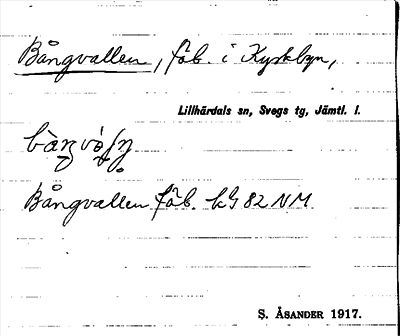 Bångvallen, fäb. i Kyrkbyn,
Lillhärdals sn, Svegs tg, Jämtl. l.
Bångvallen fäb. kG 82 NM
S. ÅSANDER 1917.